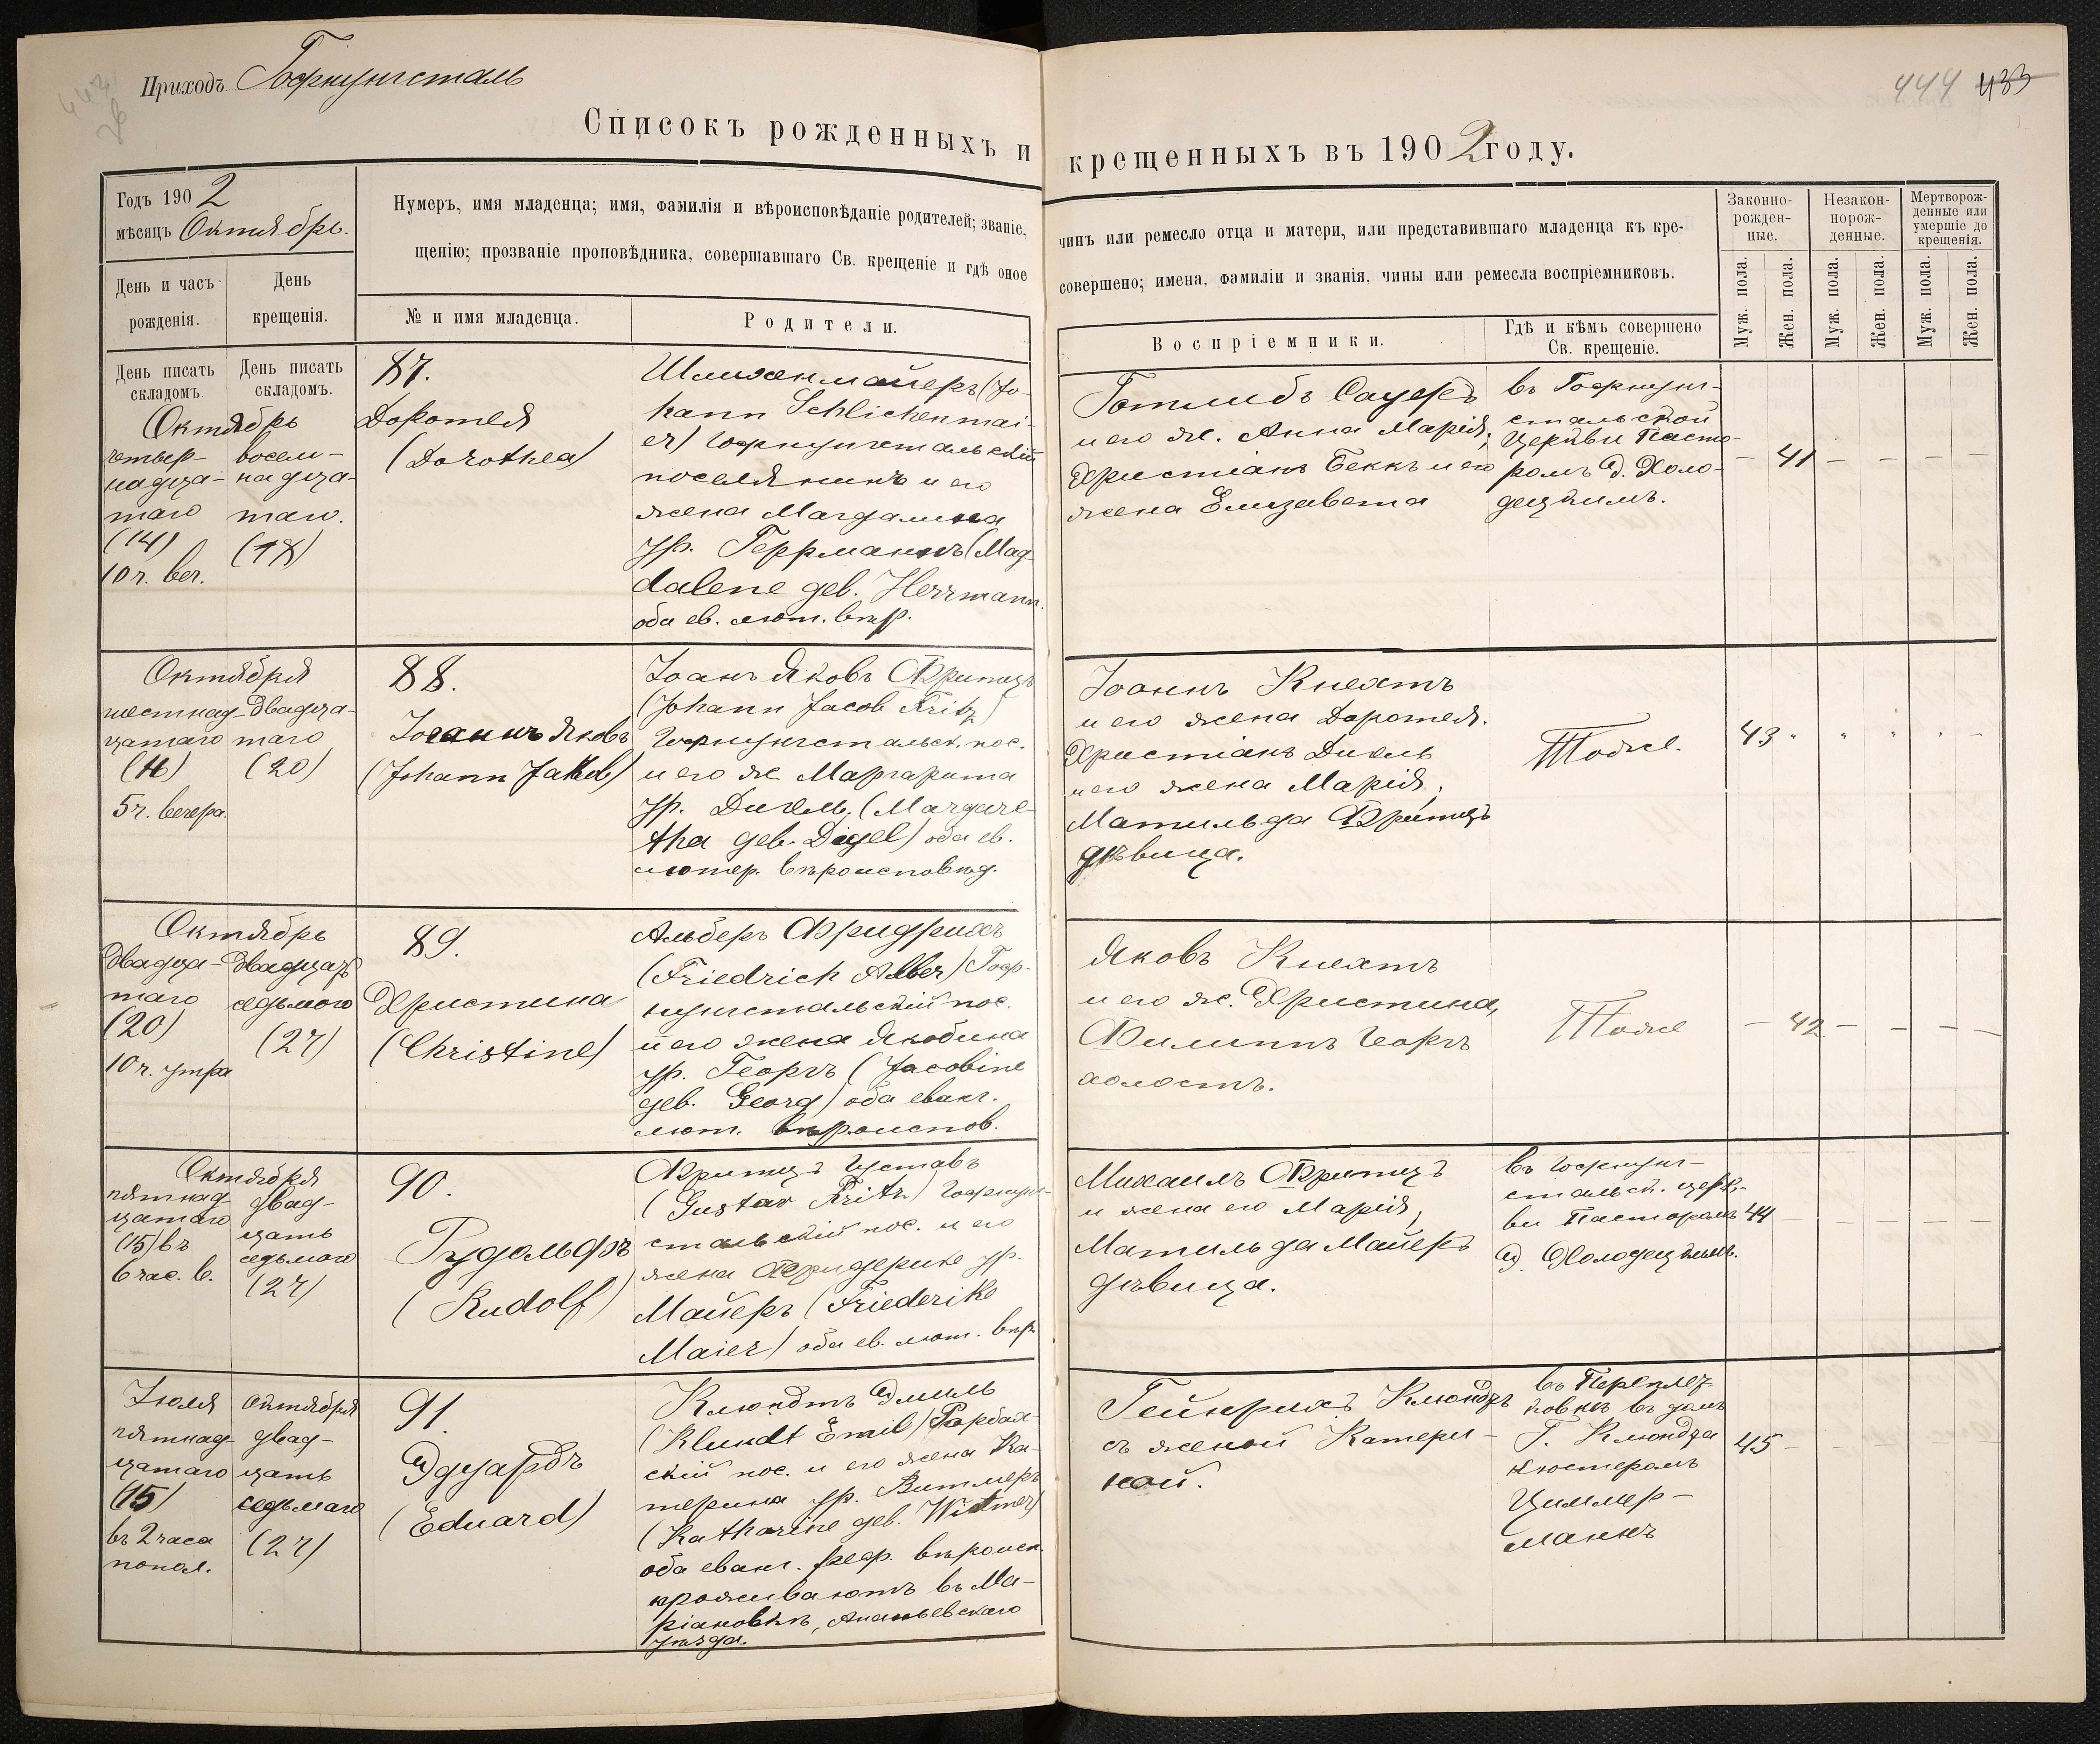 Приходъ Гофнунгсталь
444 433
Списокъ рожденныхъ и крещенныхъ въ 1902 году.
Годъ 1902
мѣсяцъ Октябрь.
День и часъ рожденія.
День крещенія.
Нумеръ, имя младенца; имя, фамилія и вѣроисповѣданіе родителей; званіе, чинъ или ремесло отца и матери, или представившаго младенца къ кре-
щенію; прозваніе проповѣдника, совершавшаго Св. крещеніе и гдѣ оное совершено; имена, фамиліи и званія, чины или ремесла воспріемниковъ.
№ и имя младенца.
Родители.
Воспріемники.
Гдѣ и кѣмъ совершено
Св. крещеніе.
Законно-
рожден-
ные.
Незакон-
норож-
денные.
Мертворож-
денные или
умершіе до
крещенія.
Муж. пола.
Жен. пола.
Муж. пола.
Жен. пола.
Муж. пола.
Жен. пола.
День писать
складомъ.
День писать
складомъ.
Октябрь
четыр-
надца-
таго
(14)
10 ч. веч.
восем-
надца-
таго.
(18)
87.
Доротея
(Dorothea)
Шлихенмайеръ (Jo-
hann Schlichenmai-
er) Гофнунгстальскій
поселянинъ и его
жена Магдалина
ур. Геррманнъ (Mag-
dalene geb. Herrmann.
оба ев. лют. вѣр.
Готлибъ Сауеръ
и его ж. Анна Марія;
Христіанъ Беккъ и его
жена Елизавета
въ Гофнунг-
стальской
Церкви Пасто-
ромъ Э. Холо-
децкимъ.
— 41 — — — —
Октября
шестнад-
цатаго
(16)
5 ч. вечера.
двадца-
таго
(20)
88.
Іоаннъ Яковъ
(Johann Jakob)
Іоанъ Яковъ Фритцъ
(Johann Jacob Fritz)
Гофнунгстальск. пос.
и его ж. Маргарита
ур. Дигель. (Margare-
tha geb. Digel) оба ев.
лютер. вѣроисповѣд.
Іоаннъ Кнехтъ
и его жена Доротея.
Христіанъ Дигель
и его жена Марія;
Матильда Фритцъ
дѣвица.
Тоже.
43 " " " " —
Октябрь
двадца-
таго
(20)
10 ч. утра
двадцать
седьмого
(27)
89.
Христина
(Christine)
Альберъ Фридрихъ
(Friedrich Alber) Гоф-
нунгстальскій пос.
и его жена Якобина
ур. Георгъ (Jacobine
geb. Georg) оба еванг.
лют. вѣроиспов.
Яковъ Кнехтъ
и его ж. Христина,
Филиппъ Георгъ
холостъ.
Тоже
— 42 — — — —
Октября
пятнад-
цатаго
(15) въ
6 час. в.
двад-
цать
седьмого
(27)
90.
Рудольфъ
(Rudolf)
Фритцъ Густавъ
(Gustav Fritz) Гофнунг-
стальскій пос. и его
жена Фридерике ур.
Майеръ (Friederike
Maier) оба ев. лют. вѣр.
Михаилъ Фритцъ
и жена его Марія,
Матильда Майеръ
дѣвица.
въ Гофнунг-
стальск. церк-
ви Пасторомъ
Э. Холодецкимъ.
44 — — — — —
Іюля
пятнад-
цатаго
(15)
въ 2 часа
попол.
Октября
двад-
цать
седьмаго
(27)
91.
Эдуардъ
(Eduard)
Клюндтъ Эмиль
(Klundt Emil) Рорбах-
скій пос. и его жена Ка-
терина ур. Витмеръ
(Katharine geb. Witmer)
оба еванг. реф. вѣроисп.
проживаютъ въ Ма-
ріановкѣ, Ананьевскаго
уѣзда.
Гейнрихъ Клюндтъ
съ женой Катери-
ной.
въ Переплец-
ковкѣ въ домѣ
Г. Клюндта
кюстеромъ
Циммер-
манъ
45 — — — — —